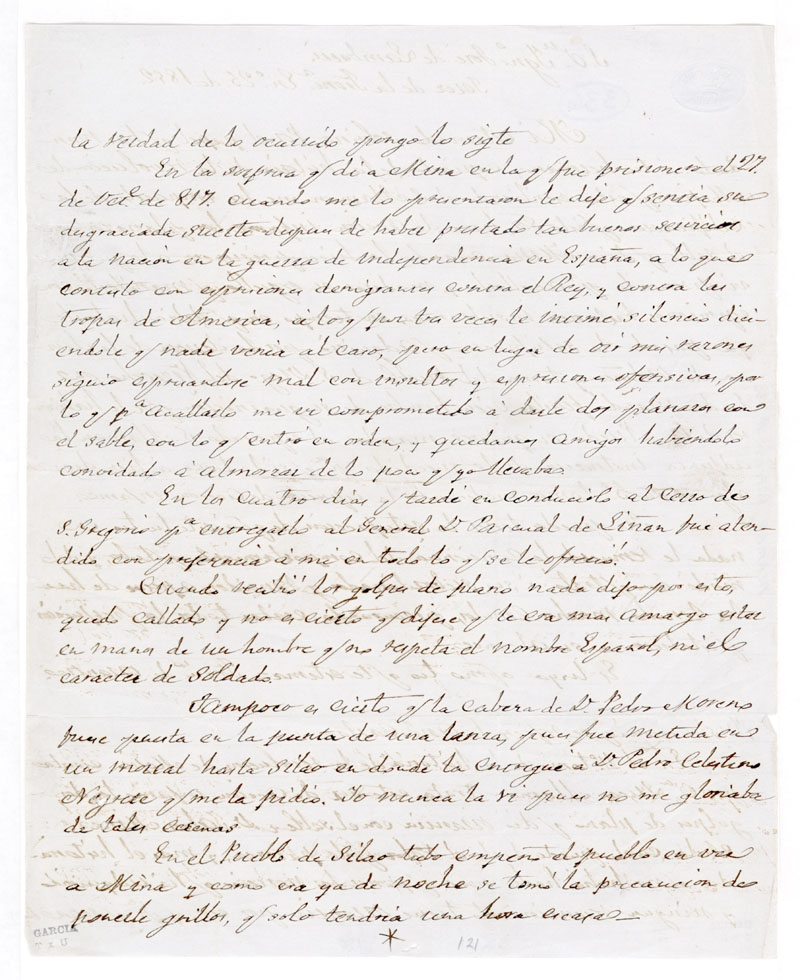 la verdad de lo ocurrido pongo lo sigte
En la sorpresa q di a Mina en la q fue prisionero el 27.
de Oct.e de 817. cuando me lo presentaron le dije q sentia su
desgraciada suerte despues de haber prestado tan buenos servicios
a la nacion en la guerra de independencia en España, a lo que
contesto con espresiones denigrantes contra el Rey, y contra las
tropas de America, á lo q por tres veces le intimé silencio dici-
endole q nada venia al caso, pero en lugar de oir mis razones
siguio espresandose mal con insultos y espresiones ofensivas, por
lo q p.a acallarlo me vi comprometido a darle dos planazos con
el sable, con lo q entró en orden, y quedamos amigos habiendolo
convidado á almorzar de lo poco q yo llevaba.
En los cuatro dias q tardé en conducirlo al Cerro de
S. Gregorio p.a entregarlo al General D. Pascual de Liñan fué aten-
dido con preferencia á mi en todo lo q se le ofreció.
Cuando recibió los golpes de plano nada dijo por esto,
quedo callado y no es cierto q dijese q le era mas amargo estar
en manos de un hombre q no respeta el nombre Español, ni el
caracter de Soldado.
Tampoco es cierto q la cabeza de D. Pedro Moreno
fuese puesta en la punta de una lanza, pues fue metida en
un morral hasta Silao en donde la entregue a D. Pedro Celestino
Negrete q me la pidio. Yo nunca la vi pues no me gloriaba
de tales cecenas
En el Pueblo de Silao tubo empeño el pueblo en ver
a Mina y como era ya de noche se tomó la precaucion de
ponerle grillos, q solo tendria una hora escasa
*
121
GARCIA